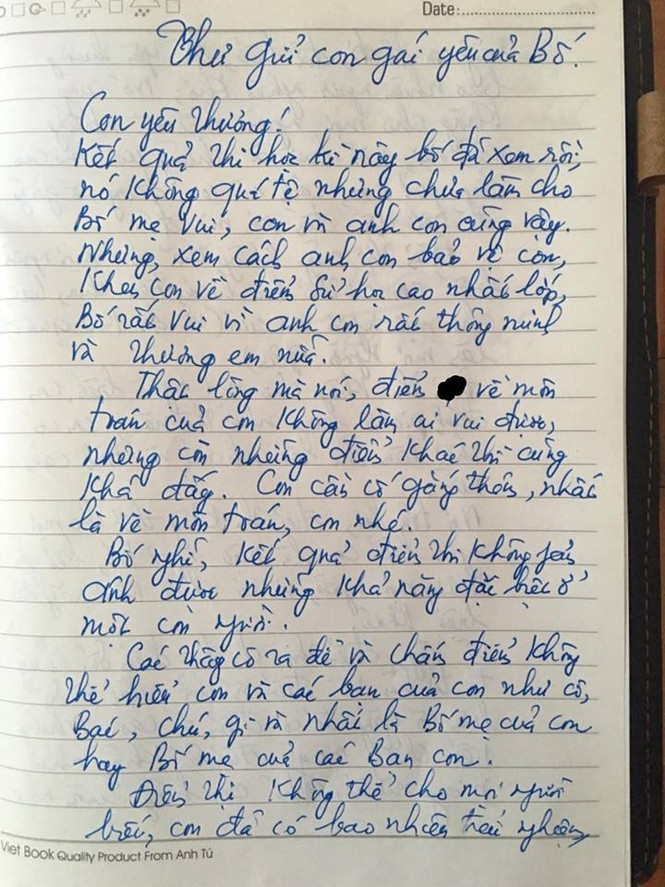 Date:
Thư gửi con gái yêu của Bố.
Con yêu thương!
Kết quả thi học kì này bố đã xem rồi,
nó không quá tệ nhưng chưa làm cho
Bố mẹ vui, con và anh con cũng vậy.
Nhưng, xem cách anh con bảo vệ con,
Khen con về điểm Sử học cao nhất lớp,
Bố rất vui vì anh con rất thông minh
và thương em nữa.
Thật lòng mà nói, điểm về môn
toán của con không làm ai vui được,
nhưng còn những điểm khác thì cũng
khá đấy. Con cần cố gắng thêm, nhất
là về môn toán, con nhé.
Bố nghĩ, kết quả điểm thi không phản
ánh được những khả năng đặc biệt ở
một con người.
Các thầy cô ra đề và chấm điểm không
thể hiểu con và các bạn của con như cô,
Bác, chú, gì và nhất là Bố mẹ của con
hay Bố mẹ của các Bạn con.
Điểm thi không thể cho mọi người
biết, con đã có bao nhiêu trải nghiệm,
Viet Book Quality Product From Anh Tú